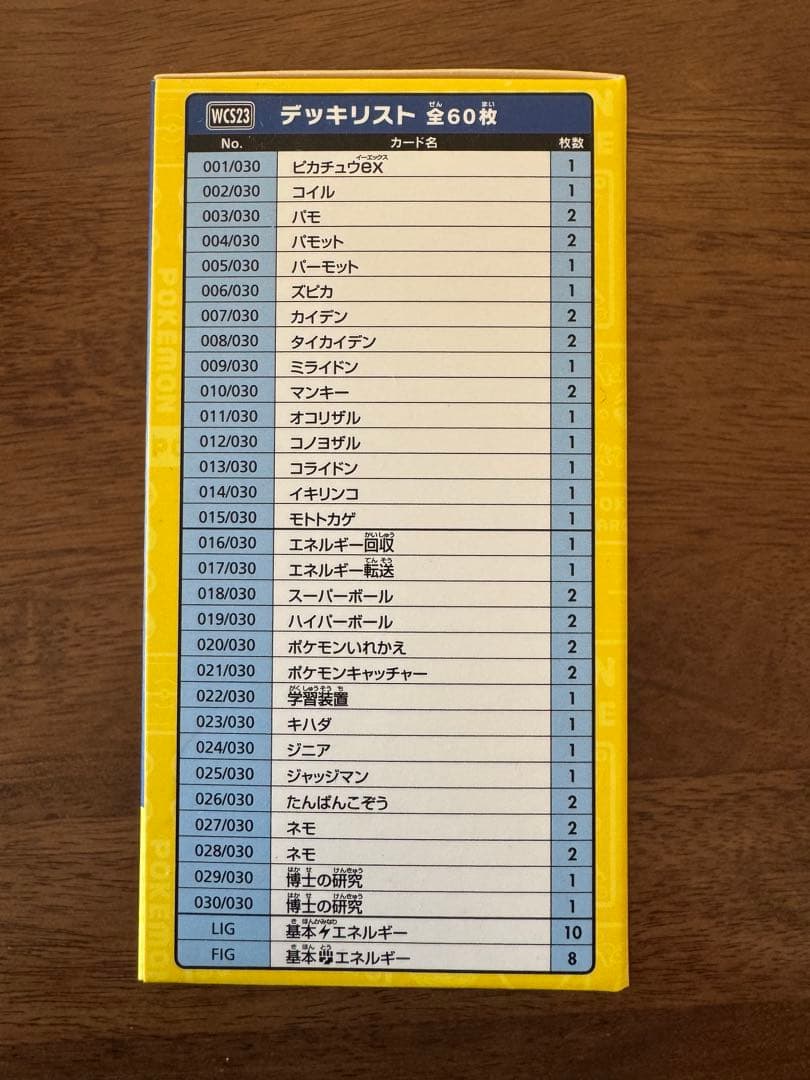 WCS23 デッキリスト 全60枚
No. カード名 枚数
001/030 ピカチュウex 1
002/030 コイル 1
003/030 パモ 2
004/030 パモット 2
005/030 パーモット 1
006/030 ズピカ 1
007/030 カイデン 2
008/030 タイカイデン 2
009/030 ミライドン 1
010/030 マンキー 2
011/030 オコリザル 1
012/030 コノヨザル 1
013/030 コライドン 1
014/030 イキリンコ 1
015/030 モトトカゲ 1
016/030 エネルギー回収 1
017/030 エネルギー転送 1
018/030 スーパーボール 2
019/030 ハイパーボール 2
020/030 ポケモンいれかえ 2
021/030 ポケモンキャッチャー 2
022/030 学習装置 1
023/030 キハダ 1
024/030 ジニア 1
025/030 ジャッジマン 1
026/030 たんぱんこぞう 2
027/030 ネモ 2
028/030 ネモ 2
029/030 博士の研究 1
030/030 博士の研究 1
LIG 基本エネルギー 10
FIG 基本エネルギー 8
POKEMON